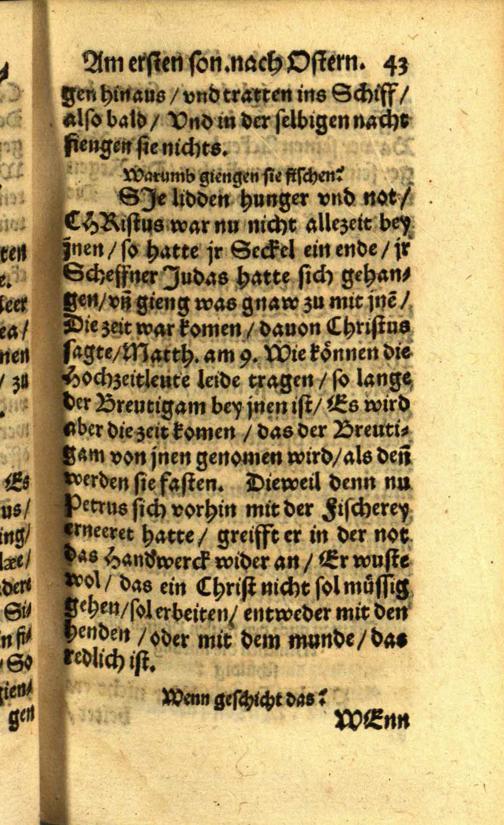 Am ersten son. nach Ostern. 43
gen hinaus / vnd tratten ins Schiff /
also bald / Vnd in der selbigen nacht
fiengen sie nichts.
Warumb giengen sie fischen?
SJe lidden hunger vnd not /
CHRistus war nu nicht allezeit bey
jnen / so hatte jr Seckel ein ende / jr
Scheffner Judas hatte sich gehan⸗
gen / vñ gieng was gnaw zu mit jnẽ /
Die zeit war komen / dauon Christus
sagte / Matth. am 9. Wie können die
Hochzeitleute leide tragen / so lange
der Breutigam bey jnen ist / Es wird
aber die zeit komen / das der Breuti⸗
gam von jnen genomen wird / als deñ
werden sie fasten. Dieweil denn nu
Petrus sich vorhin mit der Fischerey
erneeret hatte / greifft er in der not
das Handwerck wider an / Er wuste
wol / das ein Christ nicht sol müssig
gehen / sol erbeiten / entweder mit den
henden / oder mit dem munde / das
redlich ist.
Wenn geschicht das?
WEnn
ten
e.
leer
ea /
nen
/ zu
Es
us /
ing /
læe /
dere
Si⸗
n fi⸗
So
gien⸗
gen